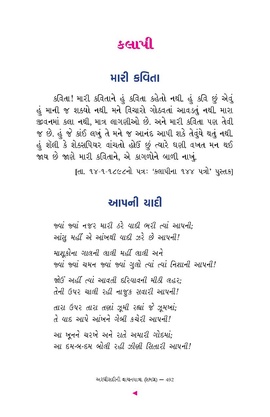 કલાપી
મારી કવિતા
કવિતા! મારી કવિતાને હું કવિતા કહેતો નથી. હું કવિ છું એવું
હું માની જ શક્યો નથી. મને વિચારો ગોઠવતાં આવડતું નથી. મારા
જીવનમાં કલા નથી, માત્ર લાગણીઓ છે. અને મારી કવિતા પણ તેવી
જ છે. હું જે કાંઈ લખું તે મને જ આનંદ આપી શકે તેવુંયે થતું નથી.
હું શેલી કે શેક્સપિયર વાંચતો હોઉં છું ત્યારે ઘણી વખત મન થઈ
જાય છે જાણે મારી કવિતાને, એ કાગળોને બાળી નાખું.
[તા. ૧૪-૧-૧૮૯૮નો પત્ર: 'કલાપીના ૧૪૪ પત્રો' પુસ્તક]
આપની યાદી
જ્યાં જ્યાં નજર મારી ઠરે યાદી ભરી ત્યાં આપની;
આંસુ મહીં એ આંખથી યાદી ઝરે છે આપની!
માશૂકોના ગાલની લાલી મહીં લાલી અને
જ્યાં જ્યાં ચમન જ્યાં જ્યાં ગુલો ત્યાં ત્યાં નિશાની આપની!
જોઉં અહીં ત્યાં આવતી દરિયાવની મીઠી લહર;
તેની ઉપર ચાલી રહી નાજુક સવારી આપની!
તારા ઉપર તારા તણાં ઝૂમી રહ્યાં જે ઝૂમખાં;
તે યાદ આપે આંખને ગેબી કચેરી આપની!
આ ખૂનને ચરખે અને રાતે અમારી ગોદમાં;
આ દમ-બ-દમ બોલી રહી ઝીણી સિતારી આપની!